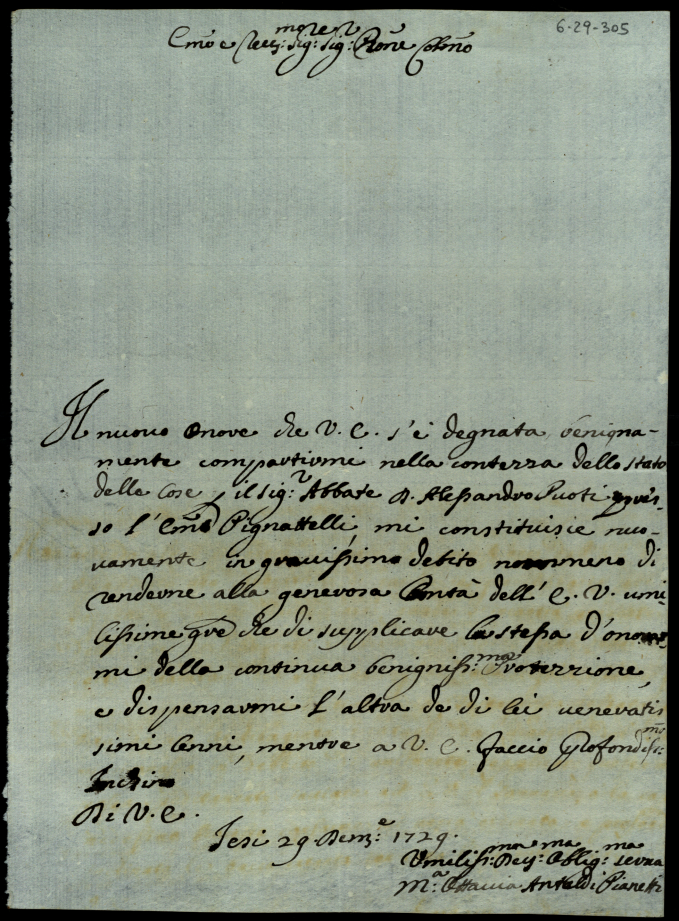 6-29-305
Em̃o e Rev: Sig: Sig: Pron̄e Colm̃o
Il nuovo onore che V. E. s'è degnata benigna-
mente compartirmi nella contezza dello stato
delle cose, il Sig:r Abbate D. Alessandro Puoti pres-
so l'Em̃o Pignattelli, mi constituisce nuo-
vamente in gravissimo debito nommeno di
renderne alla generosa bontà dell'E. V. umi
lissime gře che di supplicare la stessa d'onorar
mi della continua benigniss:ma Protezzione,
e dispensarmi l'altra de di lei veneratis
simi cenni, mentre a V. E. faccio Profondiss:mo
Inchino
Di V. E.
Jesi 29 Xcem:e 1729.
Umiliss:ma Dev:ma Oblig:ma serva
M:a Ottavia Antaldi Pianetti